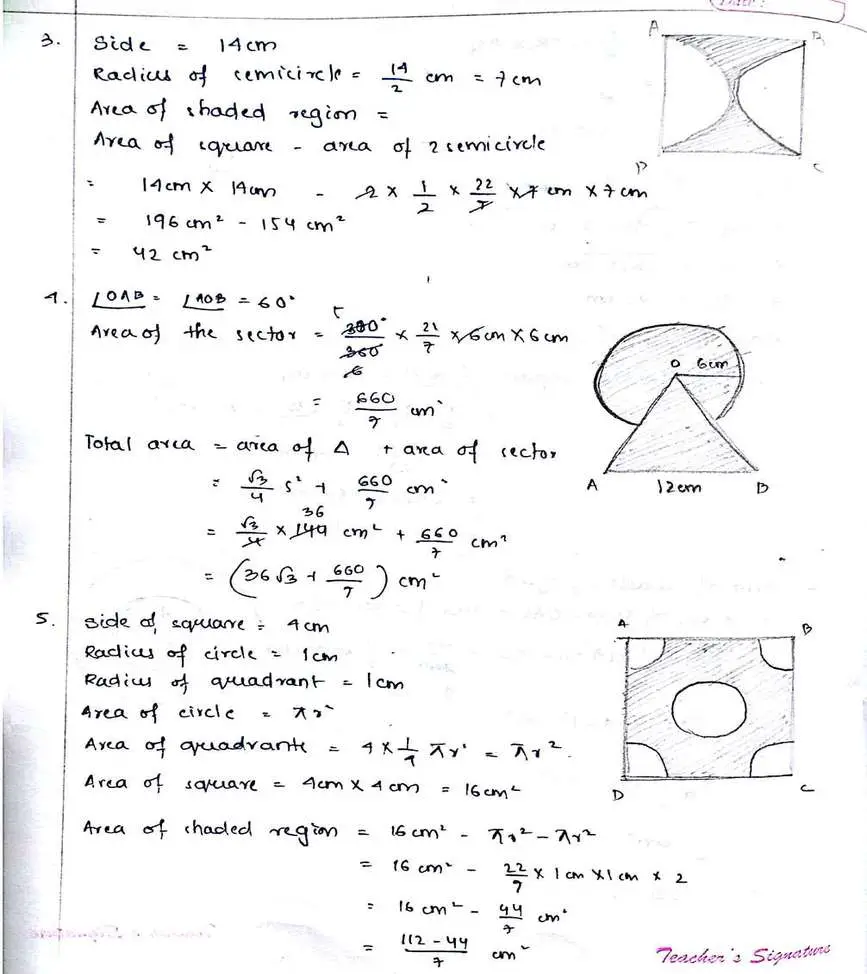 3. Side = 14cm
Radius of semicircle = 14/2 cm = 7cm
Area of shaded region =
Area of square - area of 2 semicircle
= 14cm × 14cm - 2 × 1/2 × 22/7 × 7 cm × 7cm
= 196 cm² - 154 cm²
= 42 cm²
A B
D C
4. ∠OAB = ∠AOB = 60°
Area of the sector = 300°/360 × 22/7 × 6cm × 6cm
5
6
= 660/7 cm²
Total area = area of Δ + area of sector
= √3/4 s² + 660/7 cm²
= √3/4 × 144 cm² + 660/7 cm²
36
= (36√3 + 660/7) cm²
O 6cm
A 12cm B
5. Side of square = 4cm
Radius of circle = 1cm
Radius of quadrant = 1cm
Area of circle = πr²
Area of quadrants = 4 × 1/4 πr² = πr².
Area of square = 4cm × 4cm = 16cm²
Area of shaded region = 16cm² - πr² - πr²
= 16 cm² - 22/7 × 1cm × 1cm × 2
= 16 cm² - 44/7 cm²
= 112 - 44/7 cm²
A B
D C
Teacher's Signature